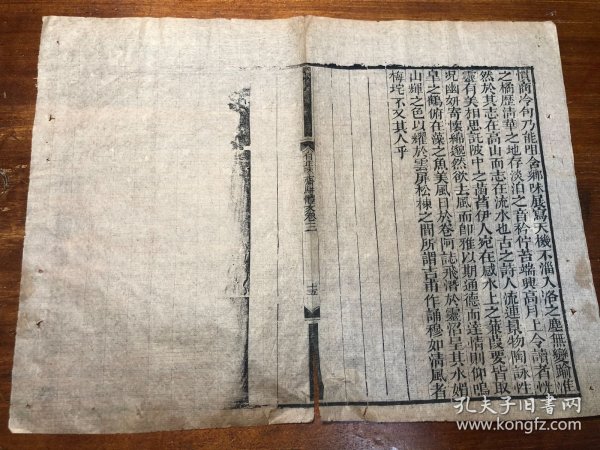 慣商冷句乃能咀含鄉味展寫天機不淄入洛之塵無變踰淮
之橘歷清華之地存淡泊之音矜佇苔端興高月上令讀者恍
然於其志在高山而志在流水也古之詩人流連景物陶詠性
靈有美相思託陂中之菡萏伊人宛在感水上之蒹葭要皆取
况幽妍寄懷綿邈然欲去風而即雅以期通德而達情則仰鳴
皐之鶴俯在藻之魚美風日於卷阿誌飛潛於靈沼呈其水媚
山輝之色以耀於雲屏松棟之間所謂吉甫作誦穆如清風者
梅坨不又其人乎
有正味齋駢體文卷二
十五
孔夫子旧书网
www.kongfz.com